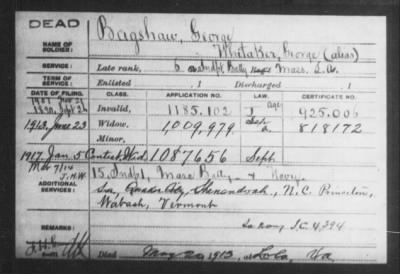 DEAD
NAME OF SOLDIER: Bagshaw, George
Whitaker, George (alias)
SERVICE: Late rank, 6 Indpt Batty Mass. L. A.
TERM OF SERVICE: Enlisted 1 Discharged 1
DATE OF FILING. CLASS. APPLICATION NO. LAW. CERTIFICATE NO.
1890, Sept 26 Invalid, 1185.102 Age 925.006
1913, June 23 Widow, 4009,979 818172
Minor,
1917, Jan 5 Contest Wid. 1087656 Sept.
ADDITIONAL SERVICES: 15 Indpt, Mass Batty & Navy.
Quaker City, Shenandoah, N.C. Princeton,
Wabash, Vermont
REMARKS: 4,394
Died May 20 1913, at Va